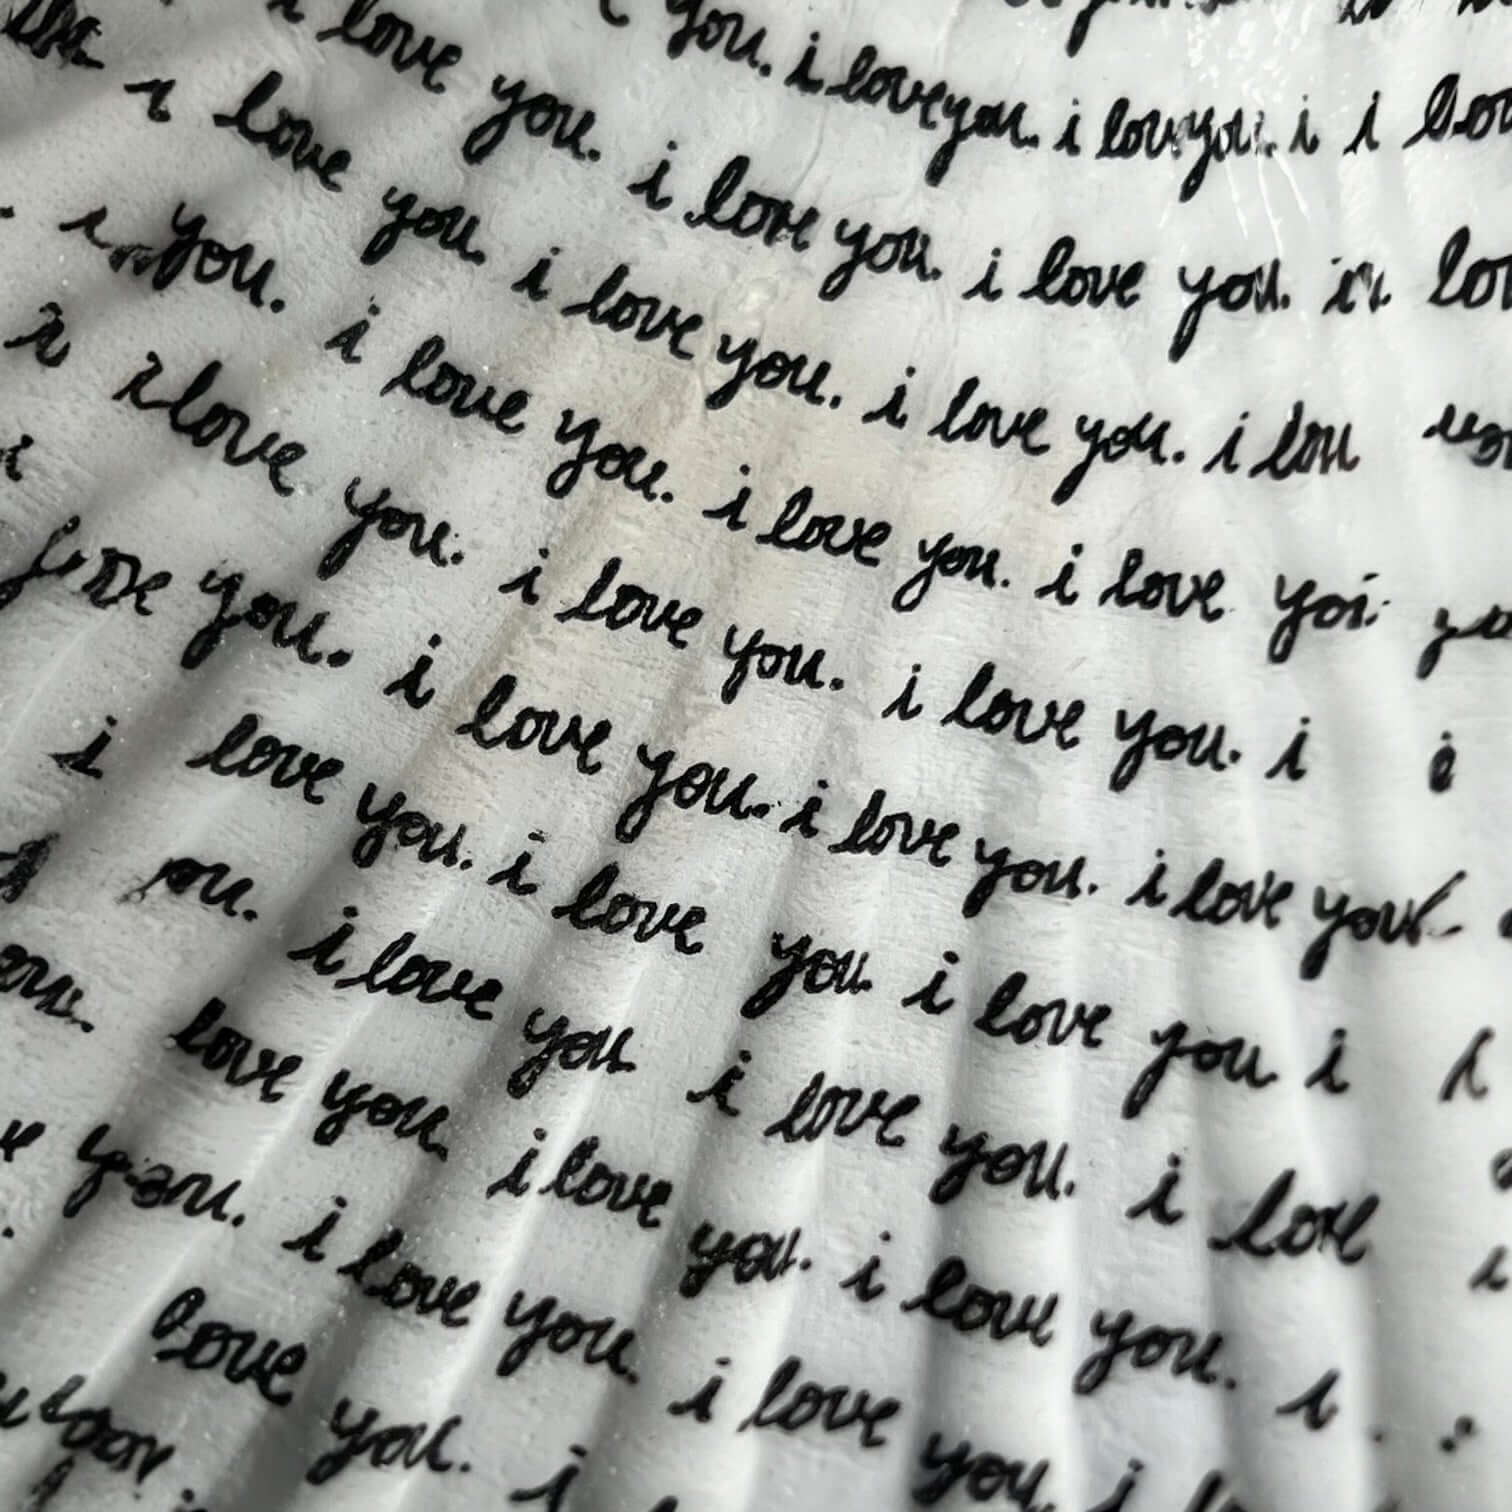 you. i love you. i love you. i i
i love you. i love you. i love you.
i love you. i love you. i love you. i
you. i love you. i love you. i love
i love you. i love you. i love you. i
you. i love you. i love you. i love you
i love you. i love you i love you i
i love you i love you. i love
love you. i love you. i love you. i
you. i love you. i love you. i
love you. i